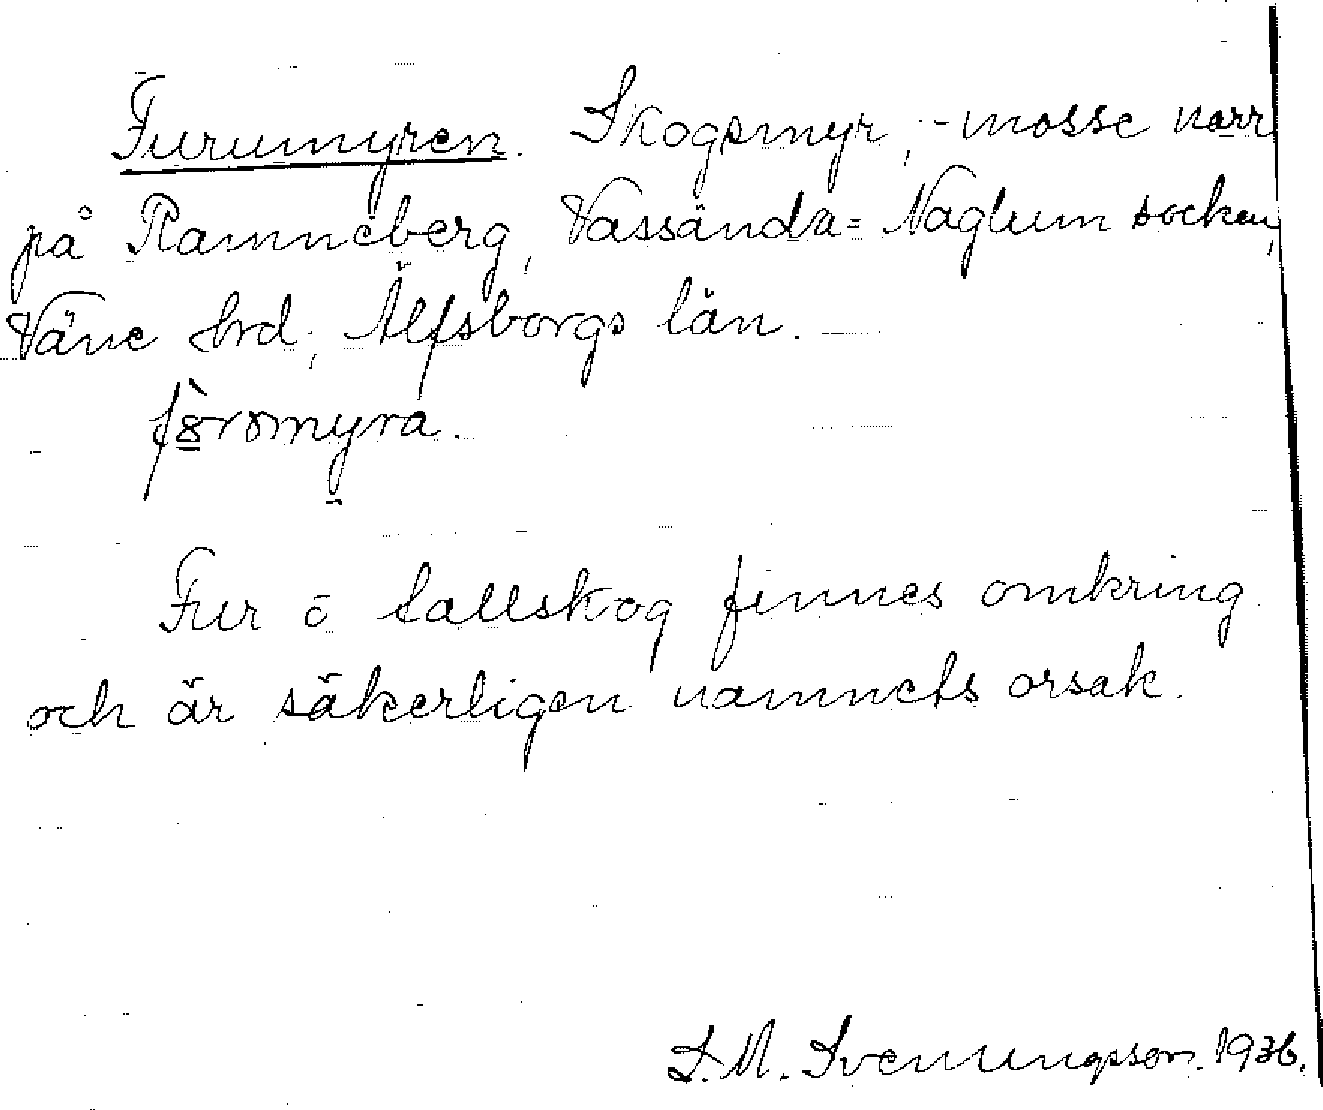 Furumyren. Skogsmyr, -mosse norr
på Ramneberg, Vassända-Naglum socken,
Väne hrd, Älfsborgs län.
Fur o tallskog finnes omkring
och är säkerligen namnets orsak.
S. M. Svenungsson. 1936.